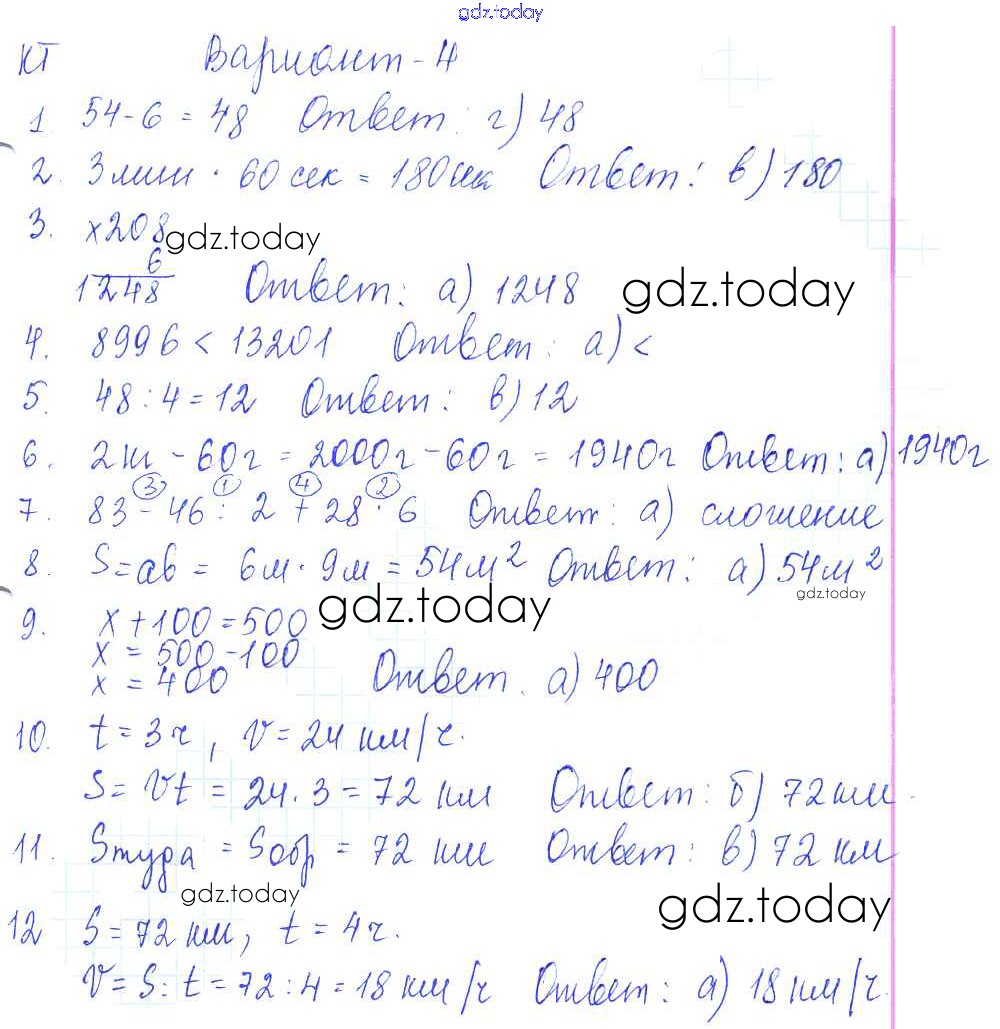 gdz.today
КТ Вариант-4
1. 54-6 = 48 Ответ: г) 48
2. 3мин · 60сек = 180сек Ответ: в) 180
3. x208 gdz.today
6
1248 Ответ: а) 1248 gdz.today
4. 8996 < 13201 Ответ: а) <
5. 48 : 4 = 12 Ответ: в) 12
6. 2кг - 60г = 2000г - 60г = 1940г Ответ: а) 1940г
3 1 4 2
7. 83 - 46 : 2 + 28 · 6 Ответ: а) сложение
8. S = ab = 6м · 9м = 54м² Ответ: а) 54м²
gdz.today
9. x + 100 = 500 gdz.today
x = 500 - 100
x = 400 Ответ. а) 400
10. t = 3ч, v = 24 км/ч.
S = vt = 24 · 3 = 72 км Ответ: б) 72 км.
11. Sтуда = Sобр = 72 км Ответ: в) 72 км
gdz.today gdz.today
12 S = 72 км, t = 4ч.
V = S : t = 72 : 4 = 18 км/ч Ответ: а) 18 км/ч.